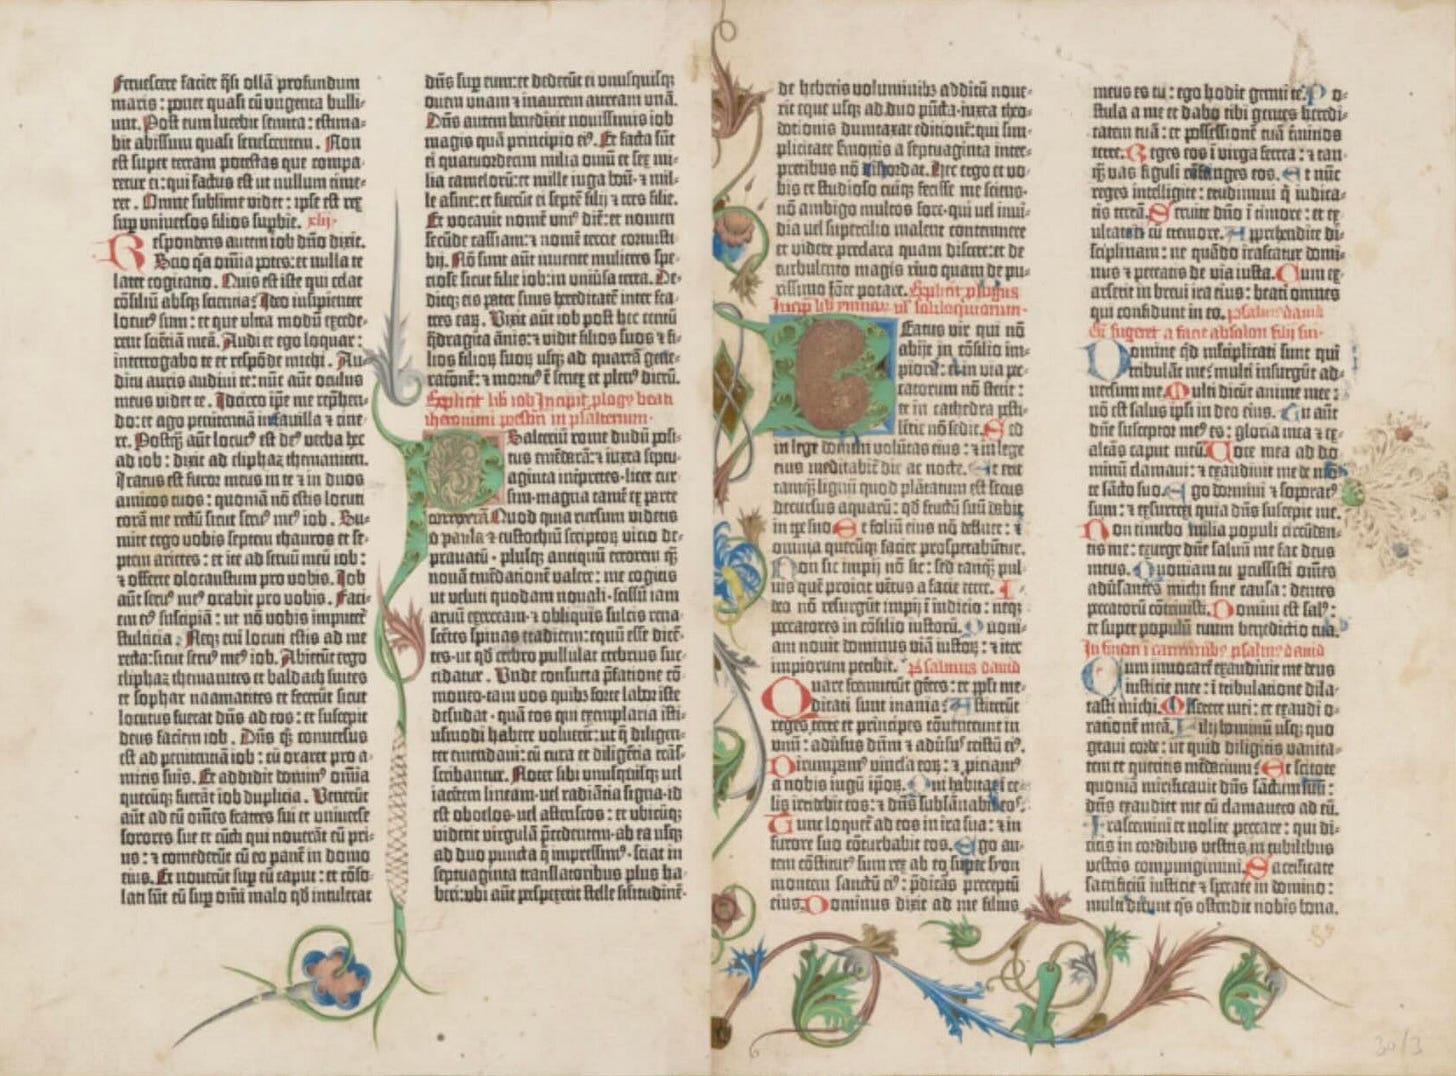 feruescere faciet q̃si ollã profundum
maris: ponet quasi cũ ungenta bulli-
unt. Post eum lucebit semita: estima-
bit abissum quasi senescentem. Non
est super terram potestas que compa-
retur ei: qui factus est ut nullum time-
ret. Omne sublime videt: ipse est rex
sup universos filios supbie. xlij·
Respondens autem iob dño dixit.
Scio q̃a om̃ia potes: et nulla te
latet cogitatio. Quis est iste qui celat
cõsiliũ absq; sciencia? Ideo insipienter
locutꝰ sum: et que ultra modũ excede-
rent sciẽtiã meã. Audi et ego loquar:
interrogabo te et respõde michi. Au-
ditu auris audiui te: nũc aũt oculus
meus videt te. Idcirco ip̃e me reprehen-
do: et ago penitentiã in fauilla ⁊ cine-
re. Postq̃ aũt locutꝰ est deꝰ verba hec
ad iob: dixit ad eliphaz themanitem.
Iratus est furor meus in te ⁊ in duos
amicos tuos: quoniã nõ estis locuti
corã me rectũ sicut seruꝰ meꝰ iob. Su-
mite ergo vobis septem thauros et se-
ptem arietes: et ite ad seruũ meũ iob:
⁊ offerte olocaustum pro vobis. Iob
aũt seruꝰ meꝰ orabit pro vobis. Faci-
em eiꝰ suscipiã: ut nõ vobis imputet̃
stulticia. Neq; eni locuti estis ad me
recta: sicut seruꝰ meꝰ iob. Abierũt ergo
eliphaz themanites et baldach suites
et sophar naamatites et fecerũt sicut
locutus fuerat dñs ad eos: et suscepit
deus faciem iob. Dñs q̃ conuersus
est ad penitentiã iob: cũ oraret pro a-
micis suis. Et addidit dominꝰ om̃ia
quecũq; fuerãt iob duplicia. Venerũt
aũt ad eũ om̃es fratres sui et universe
sorores sue et cũcti qui nouerãt eũ pri-
us: ⁊ comederũt cũ eo panẽ in domo
eius. Et mouerũt sup eũ caput: et cõso-
lati sũt eũ sup om̃i malo qđ intulerat
dñs sup eum: et dederũt ei unusquisq;
ouem vnam ⁊ inaurem auream vnã.
Dñs autem benedixit nouissimis iob
magis quã principio eiꝰ. Et facta sũt
ei quatuordecim milia ouiũ et sex mi-
lia camelorũ: et mille iuga boũ: ⁊ mil-
le asine: et fuerũt ei septẽ filij ⁊ tres filie.
Et vocauit nomẽ uniꝰ diẽ: et nomen
secũde cassiam: ⁊ nomẽ tercie cornusti-
bij. Nõ sunt aũt inuente mulieres spe-
ciose sicut filie iob: in uniũsa terra. De-
ditq; eis pater suus hereditatẽ inter fra-
tres eaꝝ. Vixit aũt iob post hec centũ
q̃dragita ãnis: ⁊ vidit filios suos ⁊ fi-
lios filioꝝ suoꝝ usq; ad quartã gene-
ratõnẽ: ⁊ mortuꝰ ẽ senex et plenꝰ dierũ.
Explicit lib iob Incipit plogꝰ beati
iheronimi presbiteri in psalterium·
Psalterium rome dudũ posi-
tus emẽdarã: ⁊ iuxta septu-
aginta inĩpretes· licet cur-
sim· magna tamẽ ex parte
correxeram. Quod quia rursum videtis
o paula ⁊ eustochiũ scriptoꝝ vicio de-
prauatũ · plusq; antiquũ errorem q̃
nouã emẽdationẽ valere: me cogitis
ut veluti quodam nouali· scissũ iam
aruũ exerceam· ⁊ obliquis sulcis rena-
scẽtes spinas eradicem: equũ esse dicẽ-
tes· ut qđ crebro pullulat crebrius suc-
cidatur. Vnde consueta p̃fatione cõ-
moneo· tam vos quibꝫ forte labor iste
desudat· quã eos qui exemplaria isti-
usmodi habere voluerit: ut q̃ diligen-
ter emendaui: cũ cura et diligẽtia trãs-
scribantur. Notet sibi vnusquisq; uel
iacẽtem lineam· uel radiãtia signa· id
est obelos· uel astericos: et ubicũq;
viderit virgulã p̃cedentem· ab ea usq;
ad duo puncta q̃ impressimꝰ· sciat in
septuaginta translatoribus plus ha-
beri: vbi aũt perspexerit stelle sĩlitudinẽ·
de hebreis voluminibꝫ additũ noue-
rit eque usq; ad duo pũcta· iuxta theo-
dotionis dumtaxat editionẽ: qui sim-
plicitate sẽmonis a septuaginta inter-
pretibus nõ discordat. Hec ergo et vo-
bis et studioso cuiq; fecisse me sciens·
nõ ambigo multos fore· qui uel inui-
dia uel supercilio malent contemnere
et videre preclara quam discere: et de
turbulento magis riuo quam de pu-
rissimo fõte potare. Explicit plogus
Incip̃ lib ymnoꝝ uel soliloquiorum·
Beatus vir qui nõ
abijt in cõsilio im-
piorũ: et in via pec-
catorum nõ stetit:
et in cathedra pesti-
lẽtie nõ sedit. Sed
in lege domini voluntas eius: ⁊ in lege
eius meditabit̃ die ac nocte. Et erit
tamq̃ lignũ quod plãtatum est secus
decursus aquarũ: qđ fructũ suũ dabit
in tẽpe suo. Et foliũ eius nõ defluet: ⁊
omnia quecũq; faciet prosperabũtur.
Non sic impij nõ sic: sed tanq̃ pul-
uis quẽ proicit vẽtus a facie terre. I-
deo nõ resurgũt impij ĩ iudicio: neq;
peccatores in cõsilio iustorũ. Quoni-
am nouit dominus viã iustoꝝ: ⁊ iter
impiorum peribit. Psalmus dauid
Quare fremuerũt gẽtes: et ppl̃i me-
ditati sunt inania? Astiterũt
reges terre et principes cõuenerunt in
vnũ: adũsus dñm ⁊ adũsuꝰ cristũ eiꝰ.
Dirumpamꝰ vincla eoꝝ: ⁊ piciamꝰ
a nobis iugũ ip̃oꝝ. Qui habitat ĩ ce-
lis irridebit eos: ⁊ dñs subsãnabit eos.
Tunc loquet̃ ad eos in ira sua: ⁊ in
furore suo cõturbabit eos. Ego au-
tem cõstitutꝰ sum rex ab eo super syon
montem sanctũ eiꝰ: p̃dicãs preceptũ
eius. Dominus dixit ad me filius
meus es tu: ego hodie genui te. Po-
stula a me et dabo tibi gentes heredi-
tatem tuã: et possessionẽ tuã tẽminos
terre. Reges eos ĩ virga ferrea: ⁊ tan-
q̃ vas figuli cõfringes eos. Et nũc
reges intelligite: erudimini q̃ iudica-
tis terrã. Seruite dño ĩ timore: et ex-
ultate ei cũ tremore. Apprehendite di-
sciplinam: ne quãdo irascatur domi-
nus ⁊ pereatis de via iusta. Cum ex-
arserit in breui ira eius: beati omnes
qui confidunt in eo. psalmꝰ dauid
Cũ fugeret a facie absalon filij sui·
Domine qđ multiplicati sunt qui
tribulãt me? multi insurgũt ad-
uersum me. Multi dicũt anime mee:
nõ est salus ipsi in deo eius. Tu aũt
dñe susceptor meꝰ es: gloria mea ⁊ ex-
altãs caput meũ. Voce mea ad do-
minũ clamaui: ⁊ exaudiuit me de mõ-
te sãcto suo. Ego dormiui ⁊ soporatꝰ
sum: ⁊ exsurrexi quia dñs suscepit me.
Non timebo milia populi circũdan-
tis me: exurge dñe saluũ me fac deus
meus. Quoniam tu percussisti om̃es
adũsantes michi sine causa: dentes
peccatorũ cõtriuisti. Domini est salꝰ:
et super populũ tuum benedictio tua.
In finem ĩ carminibꝫ psalmꝰ dauid
Cum inuocarẽ exaudiuit me deus
iusticie mee: ĩ tribulatione dila-
tasti michi. Miserere mei: et exaudi o-
rationẽ meã. Filij hominũ usq; quo
graui corde: ut quid diligitis vanita-
tem et queritis mẽdacium? Et scitote
quoniã mirificauit dñs sãctum suũ:
dñs exaudiet me cũ clamauero ad eũ.
Irascimini et nolite peccare: qui di-
citis in cordibus vestris in cubilibus
vestris compungimini. Sacrificate
sacrificiũ iusticie ⁊ sperate in domino:
multi dicunt q̃s ostendit nobis bona.
30/3